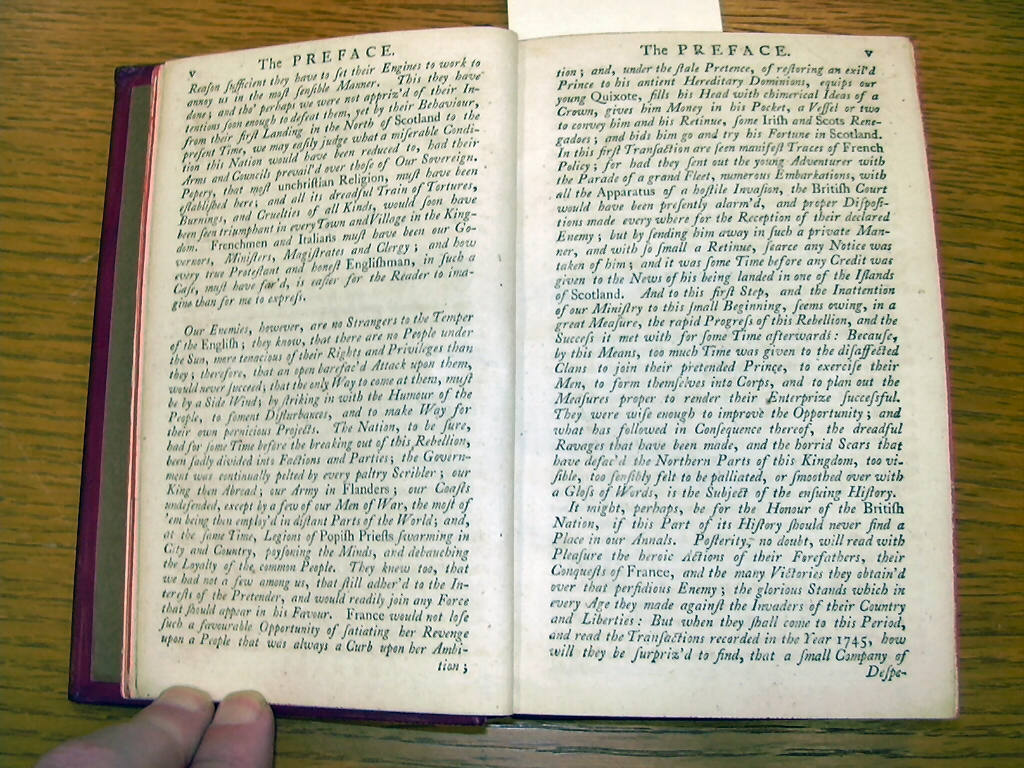 The PREFACE.
v
Reason sufficient they have to set their Engines to work to
annoy us in the most sensible Manner. This they have
done; and tho' perhaps we were not appriz'd of their In-
tentions soon enough to defeat them, yet by their Behaviour,
from their first Landing in the North of Scotland to the
present Time, we may easily judge what a miserable Condi-
tion this Nation would have been reduced to, had their
Arms and Councils prevail'd over those of Our Sovereign.
Popery, that most unchristian Religion, must have been
established here; and all its dreadful Train of Tortures,
Burnings, and Cruelties of all Kinds, would soon have
been triumphant in every Town and Village in the King-
dom. Frenchmen and Italians must have been our Go-
vernors, Ministers, Magistrates and Clergy; and how
every true Protestant and honest Englishman, in such a
Case, must have far'd, is easier for the Reader to ima-
gine than for me to express.
Our Enemies, however, are no Strangers to the Temper
of the English; they know, that there are no People under
the Sun, more tenacious of their Rights and Privileges than
they; therefore, that an open barefac'd Attack upon them,
would never succeed; that the only Way to come at them, must
be by a Side Wind; by striking in with the Humour of the
People, to foment Disturbances, and to make Way for
their own pernicious Projects. The Nation, to be sure,
had for some Time before the breaking out of this Rebellion,
been sadly divided into Factions and Parties; the Govern-
ment was continually pelted by every paltry Scribler; our
King then Abroad; our Army in Flanders; our Coasts
undefended, except by a few of our Men of War, the most of
'em being then employ'd in distant Parts of the World; and,
at the same Time, Legions of Popish Priests swarming in
City and Country, poysoning the Minds, and debauching
the Loyalty of the common People. They knew too, that
we had not a few among us, that still adher'd to the In-
terests of the Pretender, and would readily join any Force
that should appear in his Favour. France would not lose
such a favourable Opportunity of satiating her Revenge
upon a People that was always a Curb upon her Ambi-
tion;
The PREFACE.
v
tion; and, under the stale Pretence, of restoring an exil'd
Prince to his antient Hereditary Dominions, equips our
young Quixote, fills his Head with chimerical Ideas of a
Crown, gives him Money in his Pocket, a Vessel or two
to convey him and his Retinue, some Irish and Scots Rene-
gadoes; and bids him go and try his Fortune in Scotland.
In this first Transaction are seen manifest Traces of French
Policy; for had they sent out the young Adventurer with
the Parade of a grand Fleet, numerous Embarkations, with
all the Apparatus of a hostile Invasion, the British Court
would have been presently alarm'd, and proper Disposi-
tions made every where for the Reception of their declared
Enemy; but by sending him away in such a private Man-
ner, and with so small a Retinue, scarce any Notice was
taken of him; and it was some Time before any Credit was
given to the News of his being landed in one of the Islands
of Scotland. And to this first Step, and the Inattention
of our Ministry to this small Beginning, seems owing, in a
great Measure, the rapid Progress of this Rebellion, and the
Success it met with for some Time afterwards: Because,
by this Means, too much Time was given to the disaffected
Clans to join their pretended Prince, to exercise their
Men, to form themselves into Corps, and to plan out the
Measures proper to render their Enterprize successful.
They were wise enough to improve the Opportunity; and
what has followed in Consequence thereof, the dreadful
Ravages that have been made, and the horrid Scars that
have defac'd the Northern Parts of this Kingdom, too vi-
sible, too sensibly felt to be palliated, or smoothed over with
a Gloss of Words, is the Subject of the ensuing History.
It might, perhaps, be for the Honour of the British
Nation, if this Part of its History should never find a
Place in our Annals. Posterity, no doubt, will read with
Pleasure the heroic Actions of their Forefathers, their
Conquests of France, and the many Victories they obtain'd
over that perfidious Enemy; the glorious Stands which in
every Age they made against the Invaders of their Country
and Liberties: But when they shall come to this Period,
and read the Transactions recorded in the Year 1745, how
will they be surpriz'd to find, that a small Company of
Despe-